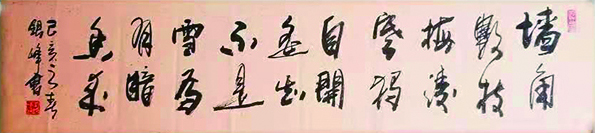 墙角
數枝
梅凌
寒独
自開
遥知
不是
雪为
有暗
香来
己亥之春
峰書